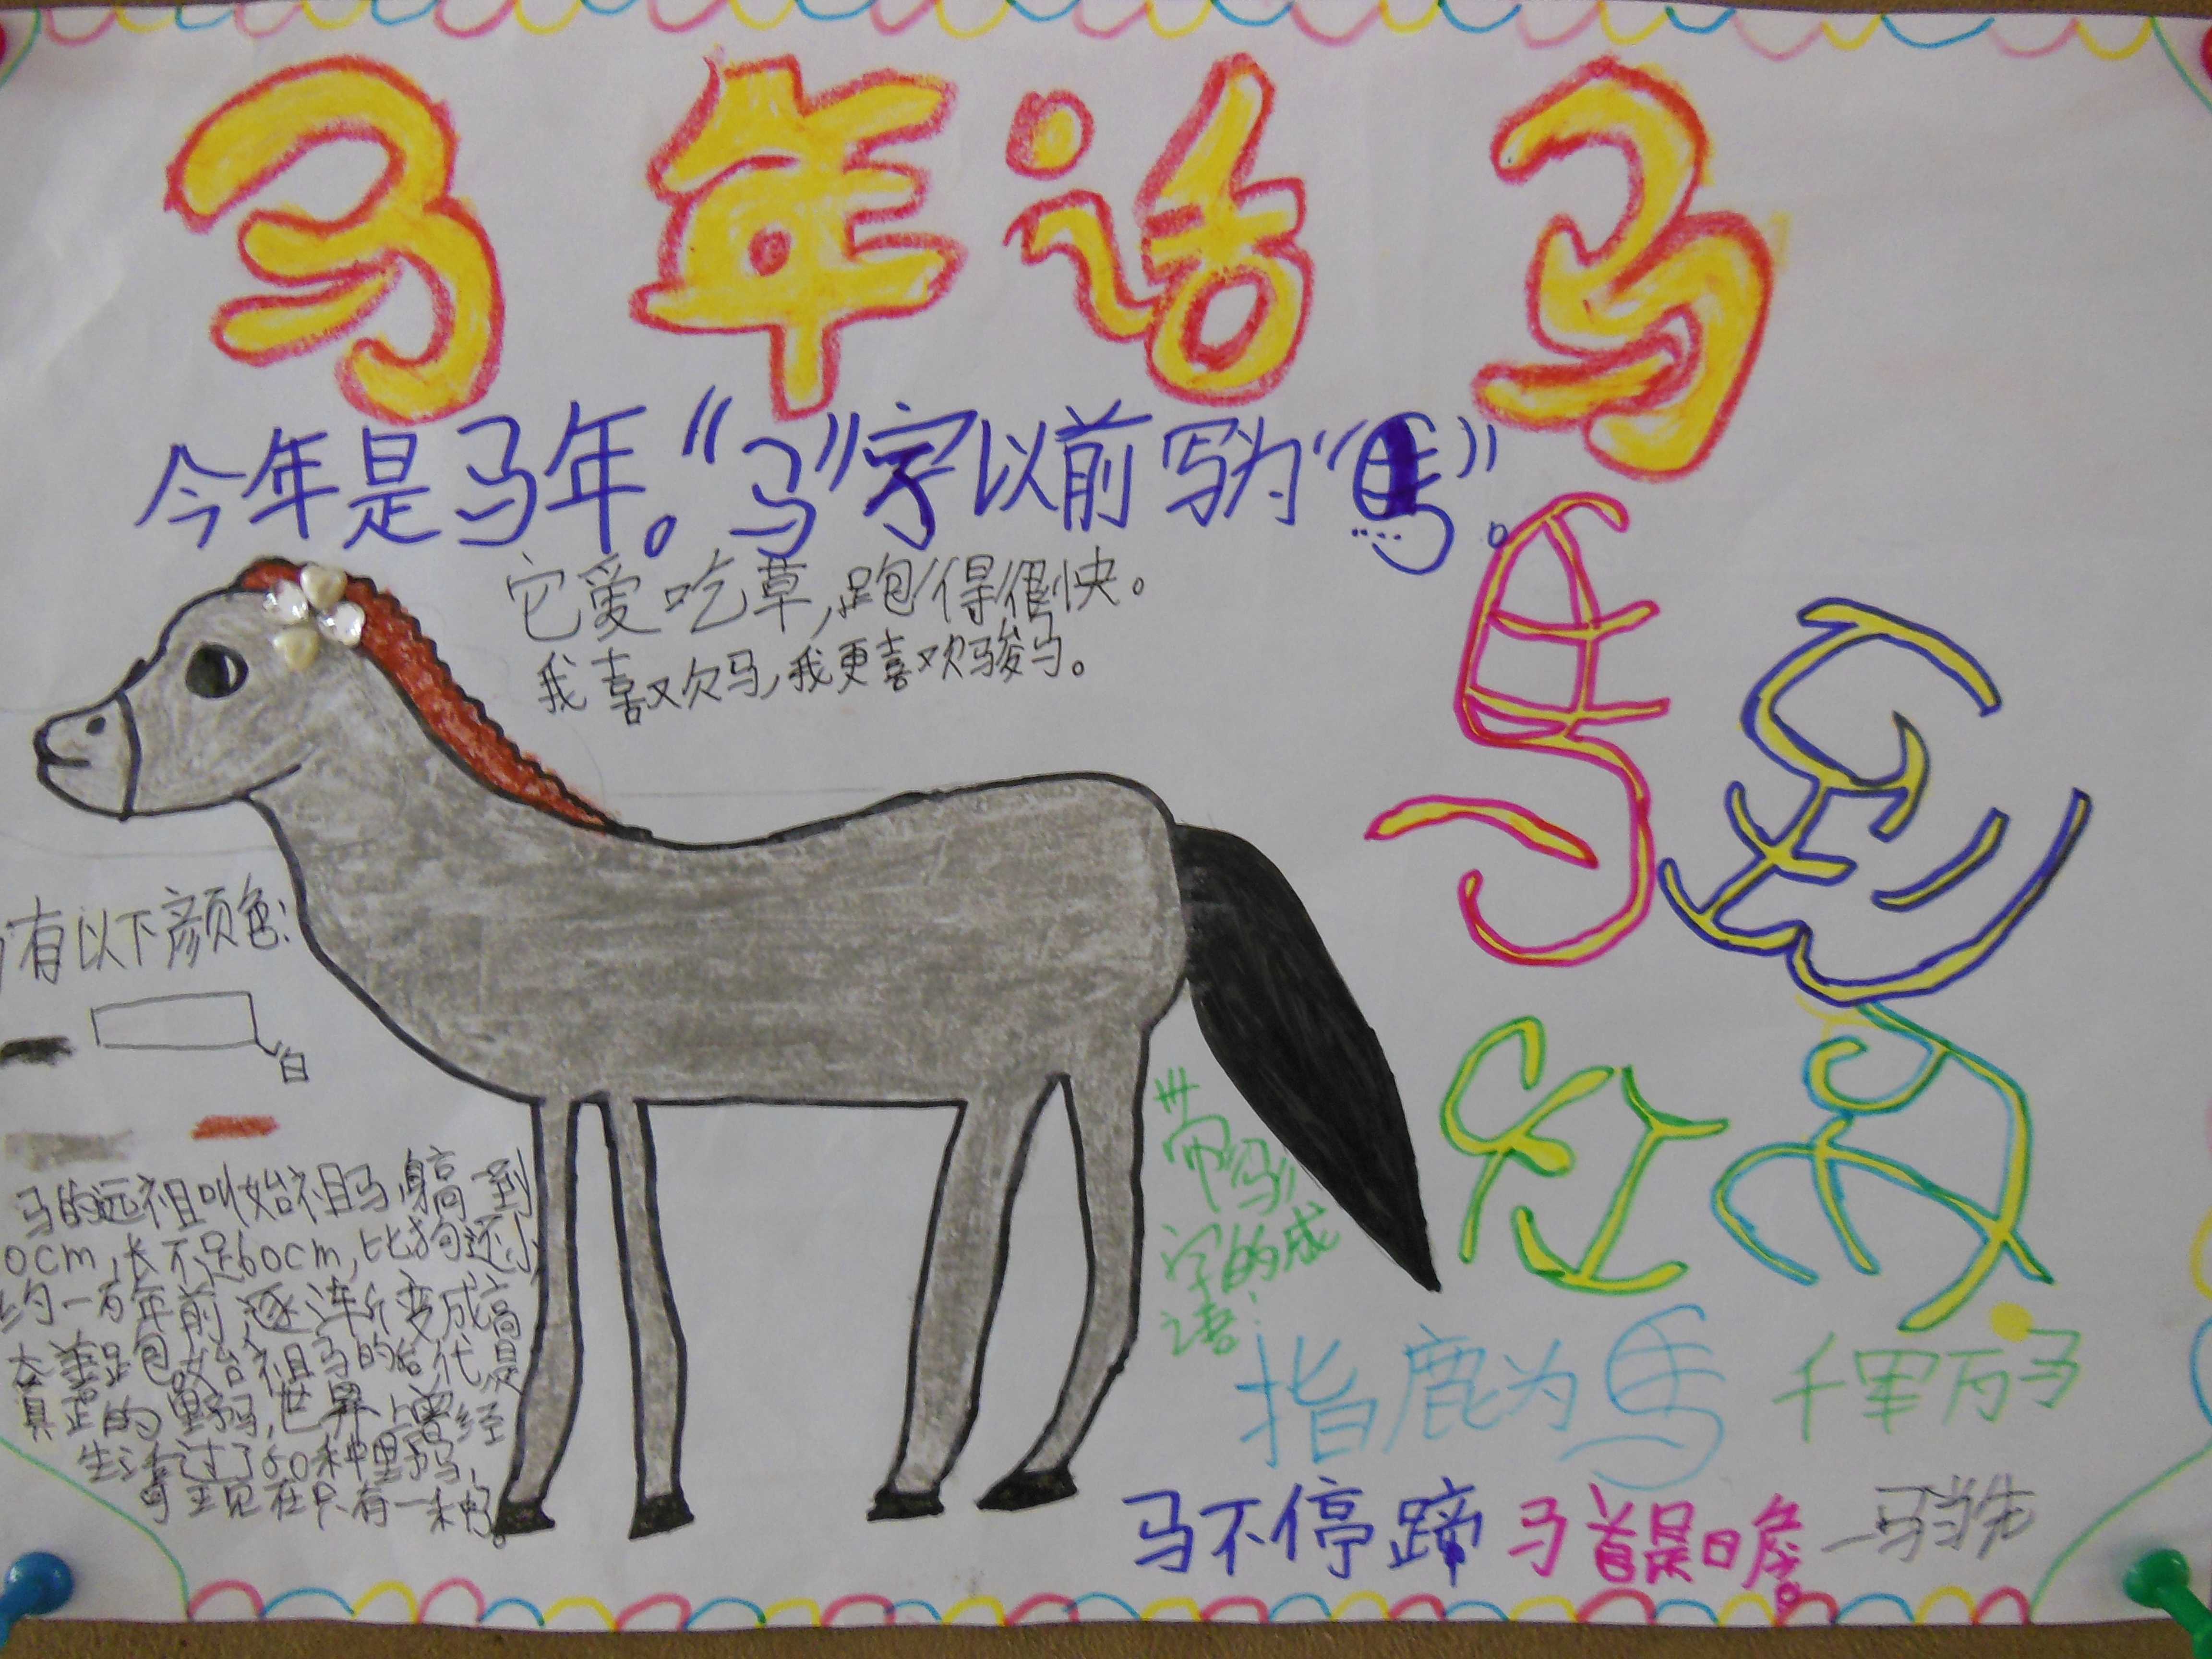 马年话马
今年是马年。“马”字以前写为“馬”。
它爱吃草,跑得很快。
我喜欢马,我更喜欢骏马。
有以下颜色:
白
马的远祖叫始祖马,身高一到
0cm,长不足60cm,比狗还小
约一百年前逐渐变成高
大善跑。始祖马的后代是
真正的野马,世界上曾经
生活过了50种野马,
可至见在只有一种。
馬到
成功
带“马”
字的成
语:
指鹿为馬 千军万马
马不停蹄 马首是瞻。 一马当先